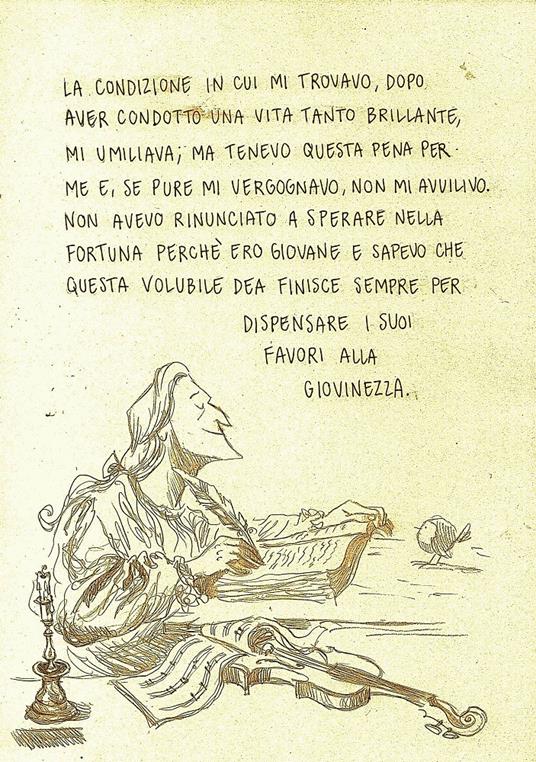 LA CONDIZIONE IN CUI MI TROVAVO, DOPO
AVER CONDOTTO UNA VITA TANTO BRILLANTE,
MI UMILIAVA; MA TENEVO QUESTA PENA PER
ME E, SE PURE MI VERGOGNAVO, NON MI AVVILIVO.
NON AVEVO RINUNCIATO A SPERARE NELLA
FORTUNA PERCHÈ ERO GIOVANE E SAPEVO CHE
QUESTA VOLUBILE DEA FINISCE SEMPRE PER
DISPENSARE I SUOI
FAVORI ALLA
GIOVINEZZA.